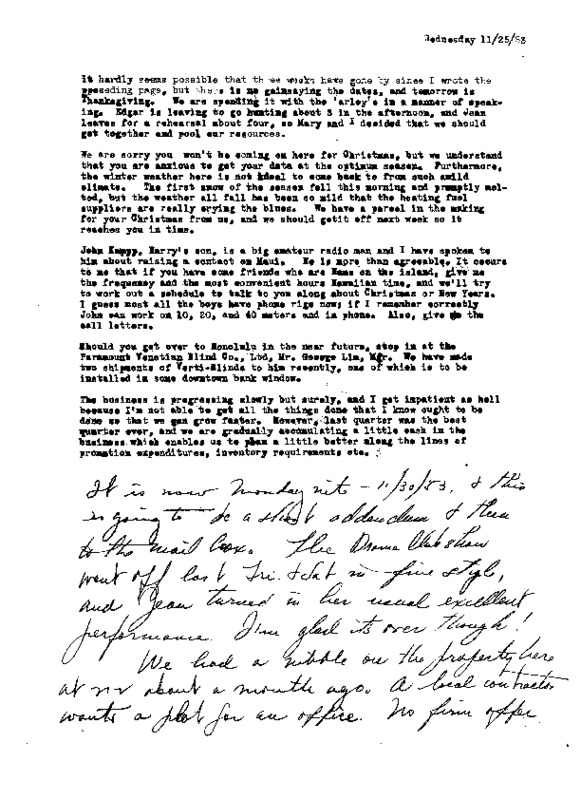 Wednesday 11/25/53
It hardly seems possible that three weeks have gone by since I wrote the
preceding page, but there is no gainsaying the dates, and tomorrow is
Thanksgiving. We are spending it with the 'arley's in a manner of speak-
ing. Edgar is leaving to go hunting about 3 in the afternoon, and Jean
leaves for a rehearsal about four, so Mary and I decided that we should
get together and pool our resources.
We are sorry you won't be coming on here for Christmas, but we understand
that you are anxious to get your data at the optimum season. Furthermore,
the winter weather here is not ideal to come back to from such a mild
climate. The first snow of the season fell this morning and promptly mel-
ted, but the weather all fall has been so mild that the heating fuel
suppliers are really crying the blues. We have a parcel in the making
for your Christmas from us, and we should getit off next week so it
reaches you in time.
John Knapp, Harry's son, is a big amateur radio man and I have spoken to
him about raising a contact on Maui. He is more than agreeable. It occurs
to me that if you have some friends who are Hams on the island, give me
the frequency and the most convenient hours Hawaiian time, and we'll try
to work out a schedule to talk to you along about Christmas or New Years.
I guess most all the boys have phone rigs now; if I remember correctly
John can work on 10, 20, and 40 meters and in phone. Also, give the
call letters.
Should you get over to Honolulu in the near future, stop in at the
Paramount Venetian Blind Co., Ltd, Mr. George Lim, Mgr. We have made
two shipments of Verti-Blinds to him recently, one of which is to be
installed in some downtown bank window.
The business is progressing slowly but surely, and I get impatient as hell
because I'm not able to get all the things done that I know ought to be
done so that we can grow faster. However, last quarter was the best
quarter ever, and we are gradually accumulating a little cash in the
business which enables us to plan a little better along the lines of
promotion expenditures, inventory requirements etc.
It is now Monday nite - 11/30/53, & this
is going to be a short addendum & then
to the mail box. The Drama Club show
went off last Fri. & Sat in fine style,
and Jean turned in her usual excellent
performance. I'm glad its over though!
We had a nibble on the property here
at about a month ago. A local contractor
wants a plot for an office. No firm offer